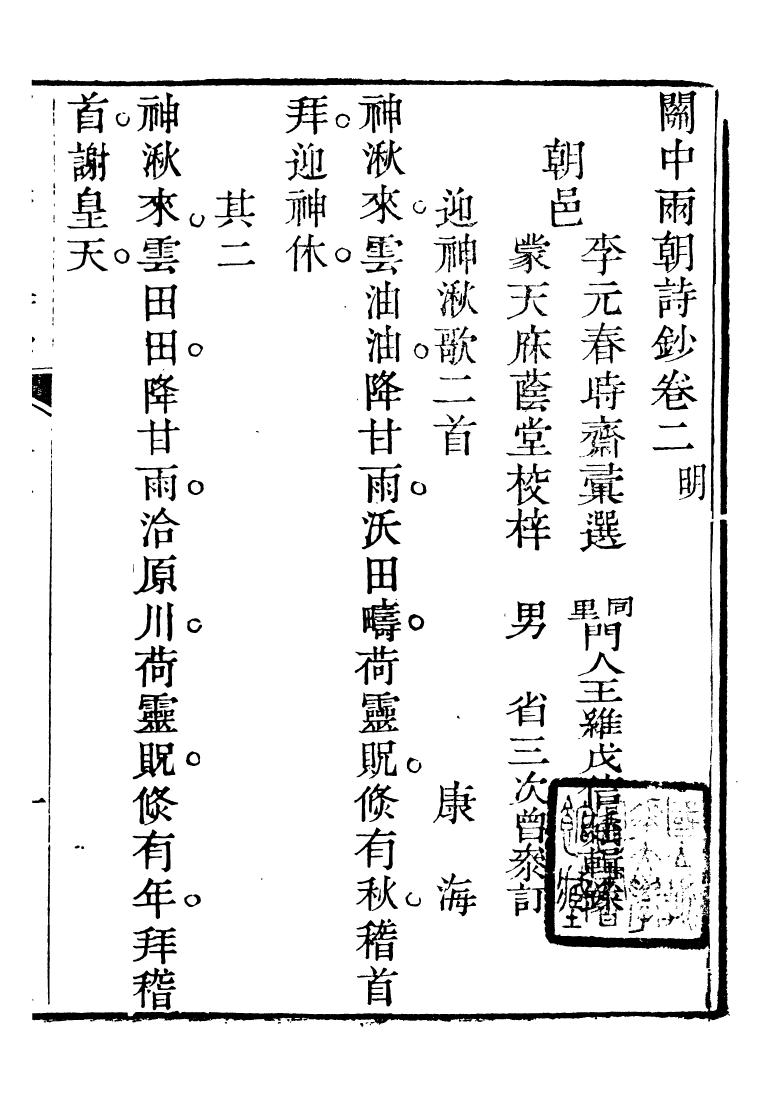 關中兩朝詩鈔卷二 明
朝邑
李元春時齋彙選 同里門人王維戊信
蒙天庥蔭堂校梓 男 省三次曾叅訂
迎神湫歌二首 康海
神湫來雲油油降甘雨沃田疇荷靈貺倐有秋稽首
拜迎神休
其二
神湫來雲田田降甘雨洽原川荷靈貺倐有年拜稽
首謝皇天
一